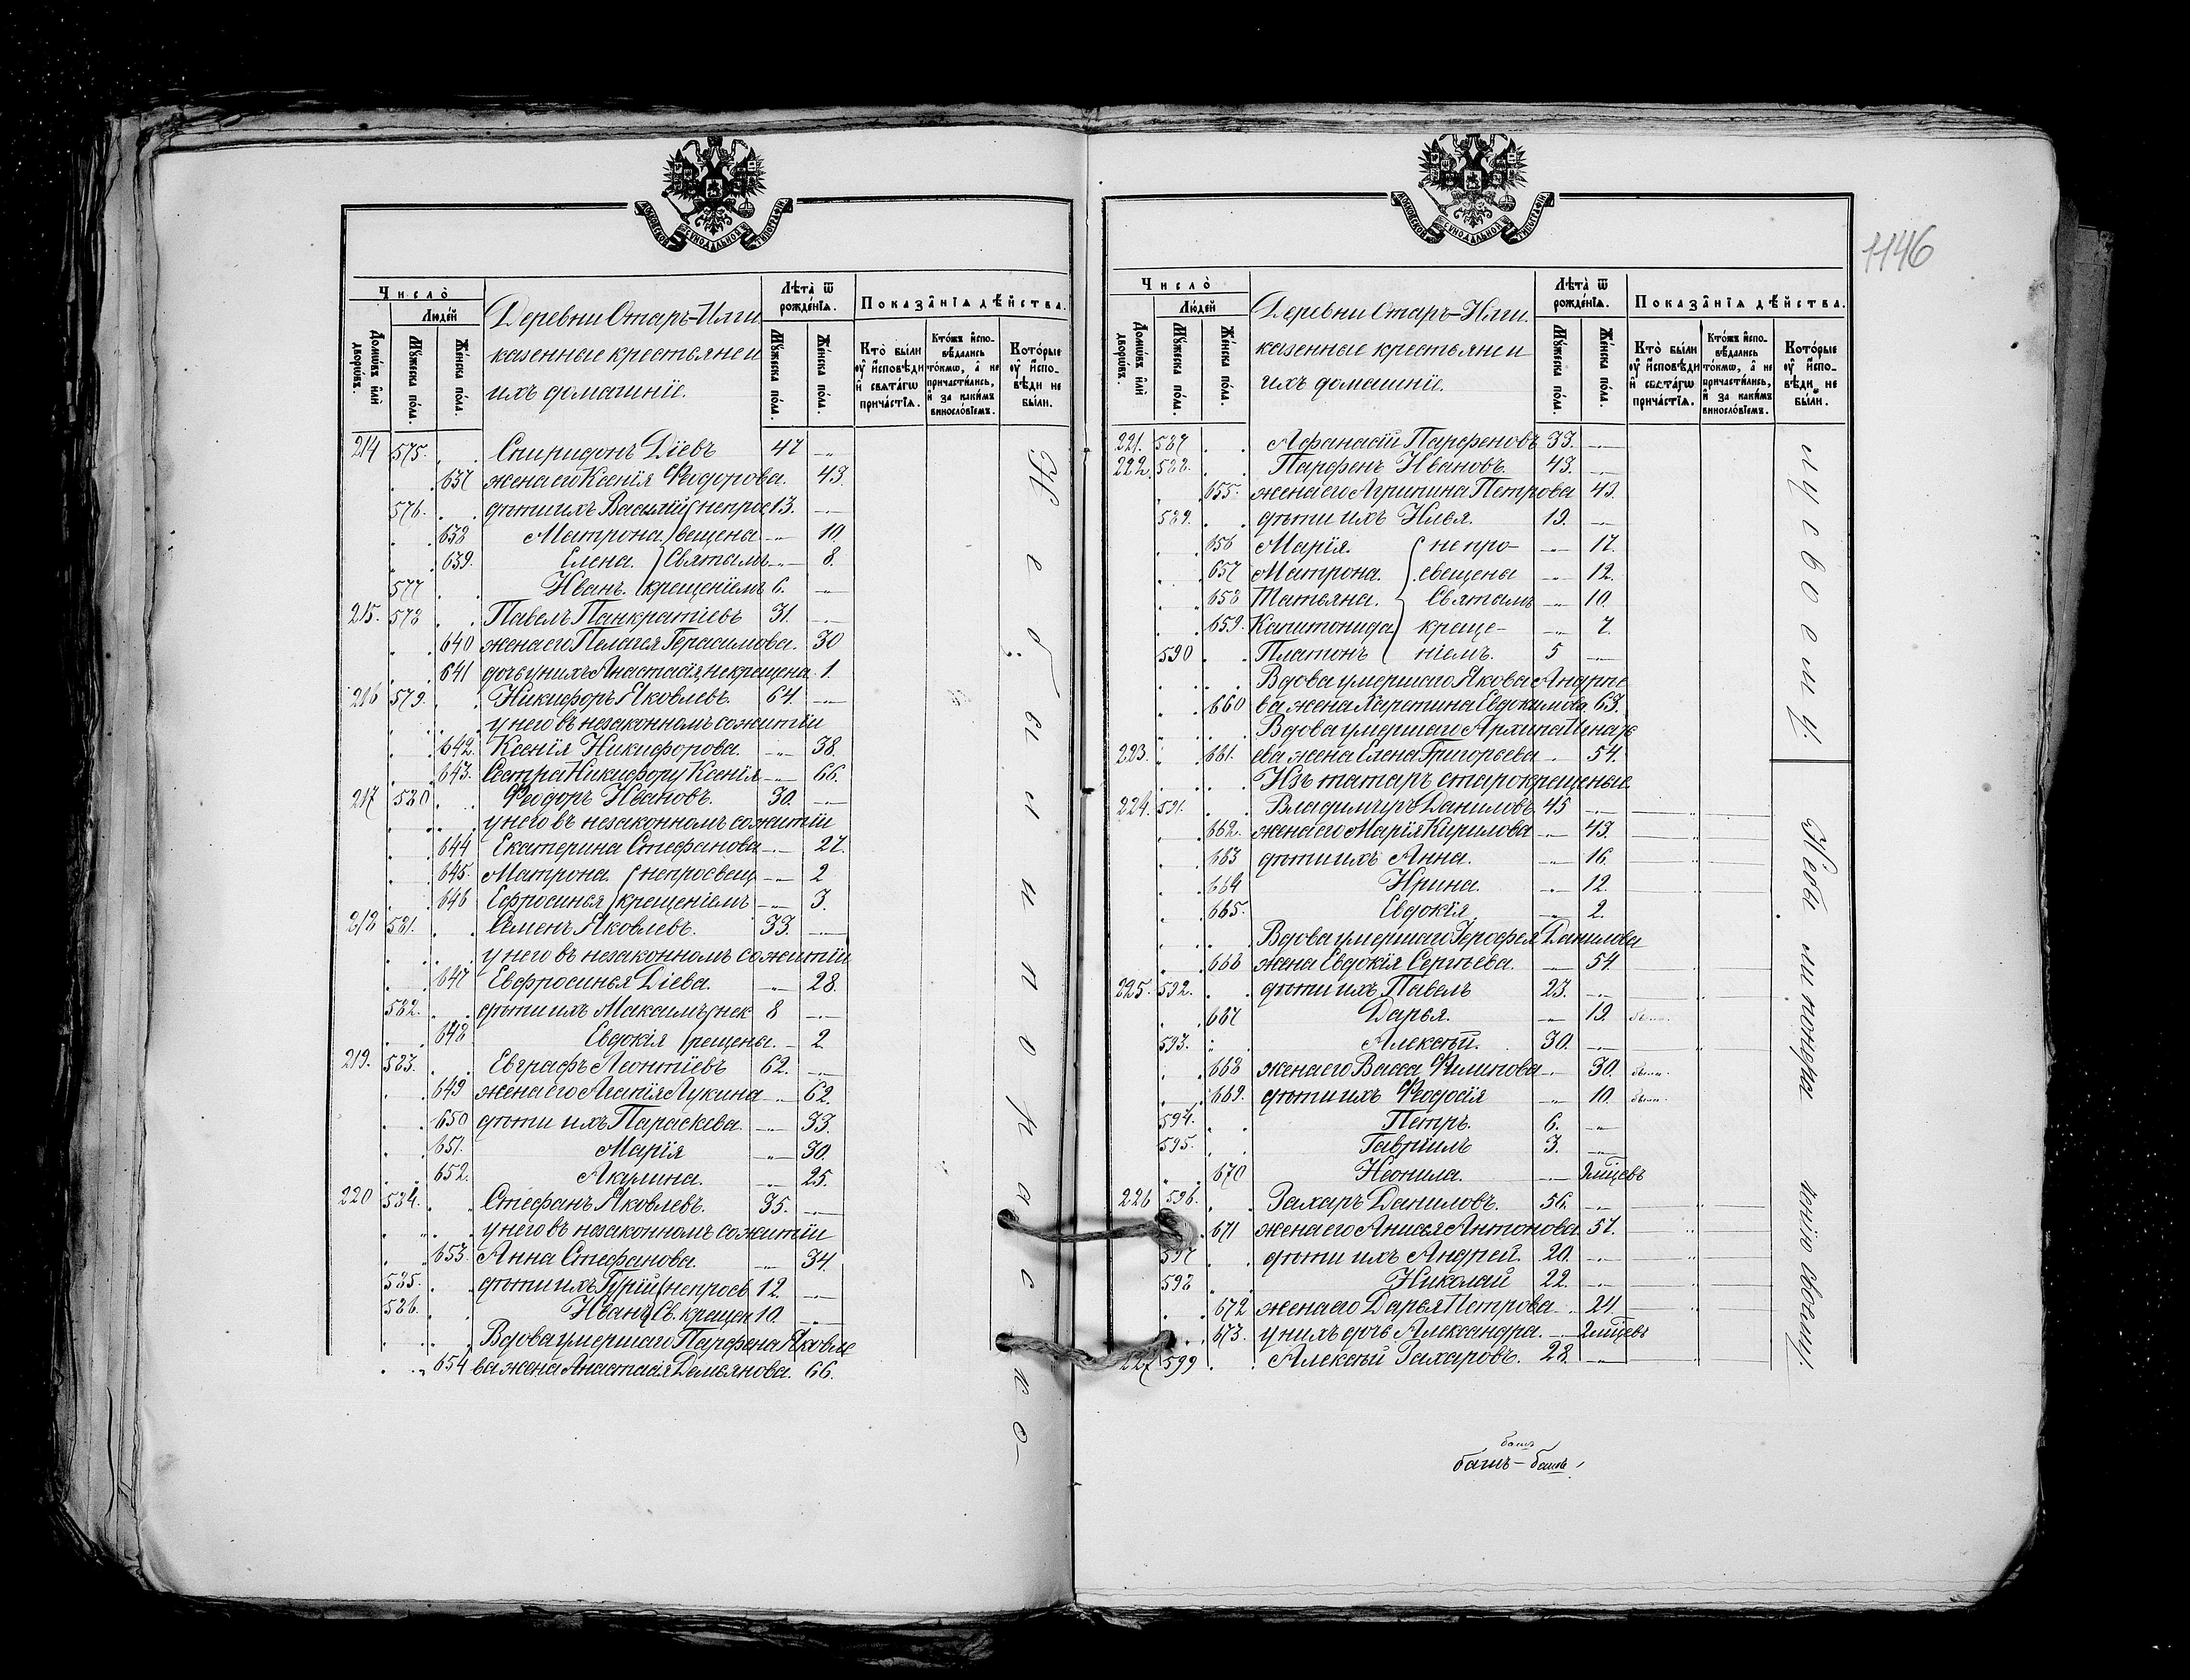 МОСКОВСКОЙ СѴНОДАЛЬНОЙ ТИПОГРАФІИ
Число̀
Людей
Домѡвъ или дворѡвъ.
Мꙋжеска пола.
Женска пола.
Деревни Старъ-Илги.
казенные крестьяне и
ихъ домашніе.
Лѣта ѿ рожденїѧ.
Мꙋжеска пола.
Женска пола.
Показанїѧ дѣйства.
Кто были оу исповѣди и свѧтагѡ причастїѧ.
Ктожъ исповѣдались токмѡ, а не причастились, и за какимъ винословїемъ.
Которые оу исповѣди не были.
214 575. Спиридонъ Діевъ 47
637 жена его Ксенія Ѳеодорова. 43.
576. дѣти ихъ Василій непрос 13.
638 Матрона. вещена 10.
639. Елена. Святымъ 8.
577 Иванъ. крещеніемъ 6.
215. 578 Павелъ Панкратіевъ 31.
640 жена его Пелагея Герасимова. 30
641 дочь у нихъ Анастасія, некрещена. 1.
216 579. Никифоръ Яковлевъ. 64.
у него въ незаконномъ сожитіи
642. Ксенія Никифорова. 38.
643. Сестра Никифору Ксенія 66.
217 580 Ѳеодоръ Ивановъ. 30.
у него въ незаконномъ сожитіи
644 Екатерина Стефанова 27.
645. Матрона. непросвещ 2
646 Ефросинья крещеніемъ 3.
218 581. Семенъ Яковлевъ. 33.
у него въ незаконномъ сожитіи
647 Евфросинья Діева. 28.
582. дѣти ихъ Максимъ нек 8
648 Евдокія рещены. 2
219. 583. Евграфъ Леонтіевъ 62.
649 жена его Агапія Лукина 62.
650 дѣти ихъ Параскева. 33.
651. Марія 30.
652. Акулина. 25.
220 584. Стефанъ Яковлевъ. 35.
у него въ незаконномъ сожитіи
653. Анна Стефанова. 34.
585. дѣти ихъ Гурій непросв 12.
586. Иванъ Св. крещен 10.
Вдова умершаго Парфена Яковле
654 ва жена Анастасія Демьянова. 66.
Не были по раско-
1146
МОСКОВСКОЙ СѴНОДАЛЬНОЙ ТИПОГРАФІИ
Число̀
Людей
Домѡвъ или дворѡвъ.
Мꙋжеска пола.
Женска пола.
Деревни Старъ-Илги.
казенные крестьяне и
ихъ домашніе.
Лѣта ѿ рожденїѧ.
Мꙋжеска пола.
Женска пола.
Показанїѧ дѣйства.
Кто были оу исповѣди и свѧтагѡ причастїѧ.
Ктожъ исповѣдались токмѡ, а не причастились, и за какимъ винословїемъ.
Которые оу исповѣди не были.
221. 587 Афанасій Парфеновъ 33.
222. 588. Парфенъ Ивановъ. 43.
655. жена его Агрипина Петрова 43.
589. дѣти ихъ Илья. 19.
656 Марія. непро- 17.
657 Матрона. свещены 12.
658 Татьяна. Святымъ 10.
659. Капитонида креще- 7.
590 Платонъ ніемъ. 5
Вдова умершаго Якова Андрѣе
660 ва жена Харитина Евдокимова. 63.
Вдова умершаго Архипа
223. 661. ева жена Елена Григорьева 54.
Изъ татаръ старокрещеные.
224. 591. Владимиръ Даниловъ 45
662. жена его Марія Кирилова 43.
663 дѣти ихъ Анна. 16.
664 Ирина. 12.
665. Евдокія 2.
Вдова умершаго Ерофея Данилова
666 жена Евдокія Сергѣева. 54.
225. 592. дѣти ихъ Павелъ 23.
667 Дарья. 19. были.
593. Алексѣй. 30.
668 жена его Васса Филипова 30. были.
669. дѣти ихъ Ѳеодосія 10. были.
594. Петръ. 6.
595. Гавріилъ 3.
670 Неонила. 2мѣцевъ
226 596. Захаръ Даниловъ. 56.
671 жена его Анисья Антонова 57.
597 дѣти ихъ Андрей. 20.
598 Николай 22.
672 жена его Дарья Петрова 24.
673. у нихъ дочь Александра. 2мѣцевъ
227 599 Алексѣй Захаровъ. 28.
лу своему.
Небыли по нерадѣнію своему.